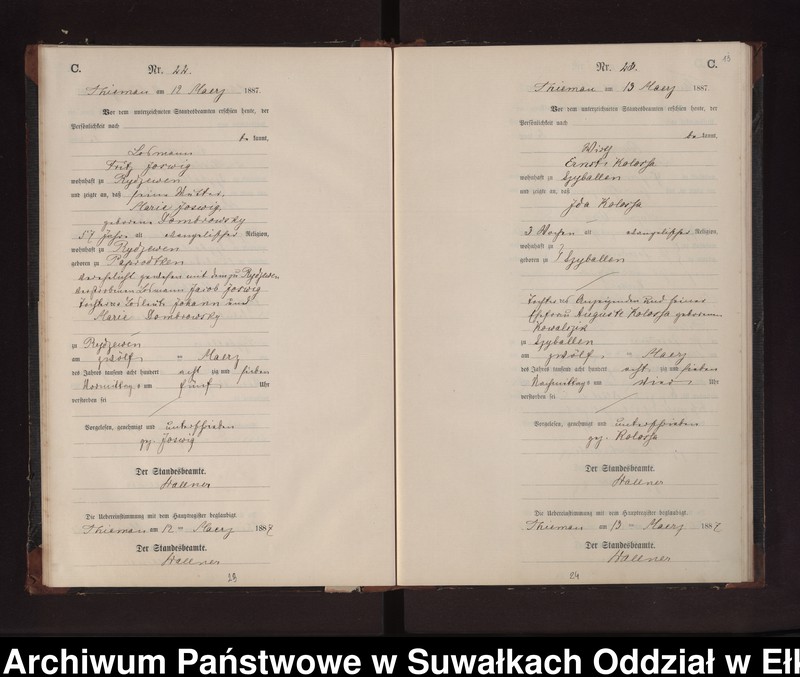 C. Nr. 22.
Thiemau am 12 Maerz 1887.
Vor dem unterzeichneten Standesbeamten erschien heute, der
Persönlichkeit nach
be kannt,
Losmann
Fritz Joswig
wohnhaft zu Rydzewen
und zeigte an, daß seine Mutter,
Marie Joswig
geborene Dombrowsky
57 Jahre alt evangelischer Religion,
wohnhaft zu Rydzewen
geboren zu
verehelicht gewesen mit dem zu Rydzewen
verstorbenen Losmann Jacob Joswig
Tochter Losleute Johann und
Marie Dombrowsky
zu Rydzewen
am zwölf Maerz
des Jahres tausend acht hundert acht zig und sieben
Vormittags um fünf Uhr
verstorben sei
Vorgelesen, genehmigt und unterschrieben
gez. Joswig
Der Standesbeamte.
Hallner
Die Uebereinstimmung mit dem Hauptregister beglaubigt.
Thiemau am 12 ten Maerz 1887
Der Standesbeamte.
Hallner
23
15
Nr. 23. C.
Thiemau am 13 Maerz 1887.
Vor dem unterzeichneten Standesbeamten erschien heute, der
Persönlichkeit nach
be kannt,
Wirth
Ernst Kolossa
wohnhaft zu Czyballen
und zeigte an, daß
Ida Kolossa
3 Wochen alt evangelischer Religion,
wohnhaft zu
geboren zu Czyballen
Tochter des Anzeigenden und seiner
Ehefrau Auguste Kolossa geborenen
Kowalzik
zu Czyballen
am zwölf Maerz
des Jahres tausend acht hundert acht zig und sieben
Nachmittags um vier Uhr
verstorben sei
Vorgelesen, genehmigt und unterschrieben
gez. Kolossa
Der Standesbeamte.
Hallner
Die Uebereinstimmung mit dem Hauptregister beglaubigt.
Thiemau am 13 ten Maerz 1887
Der Standesbeamte.
Hallner
24
Archiwum Państwowe w Suwałkach Oddział w Ełk